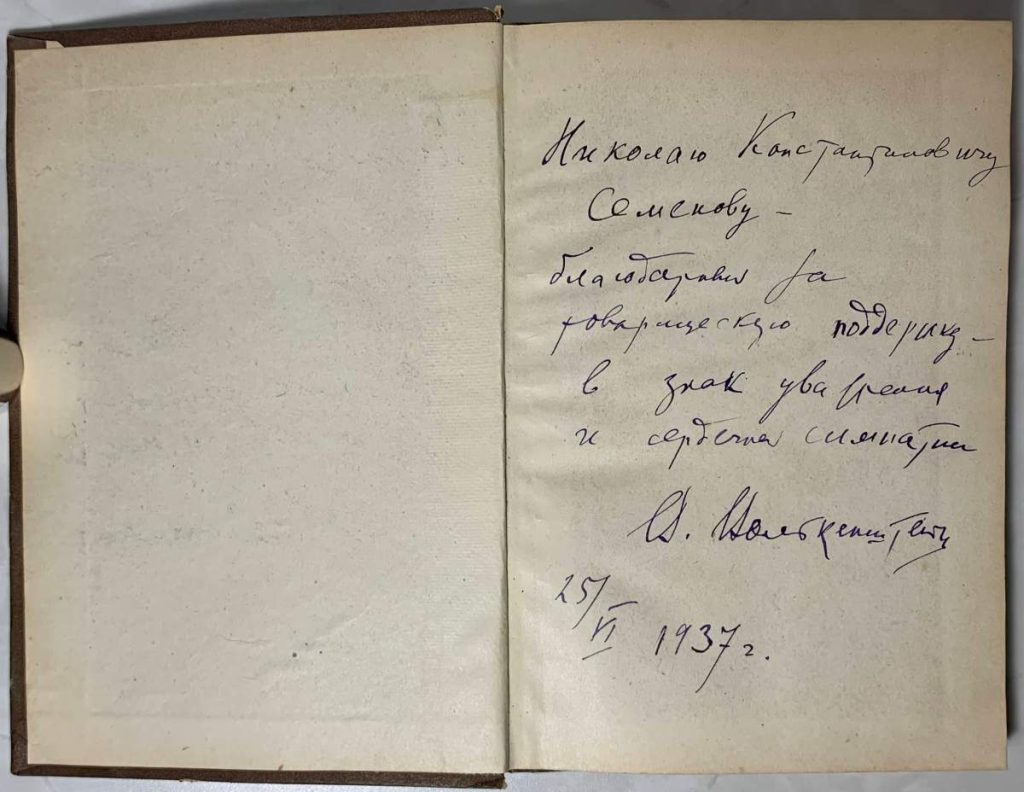 Николаю Константиновичу
Семенову –
благодарный за
товарищескую поддержку –
в знак уважения
и сердечной симпатии
В. Волькенштейн
25/VI 1937 г.